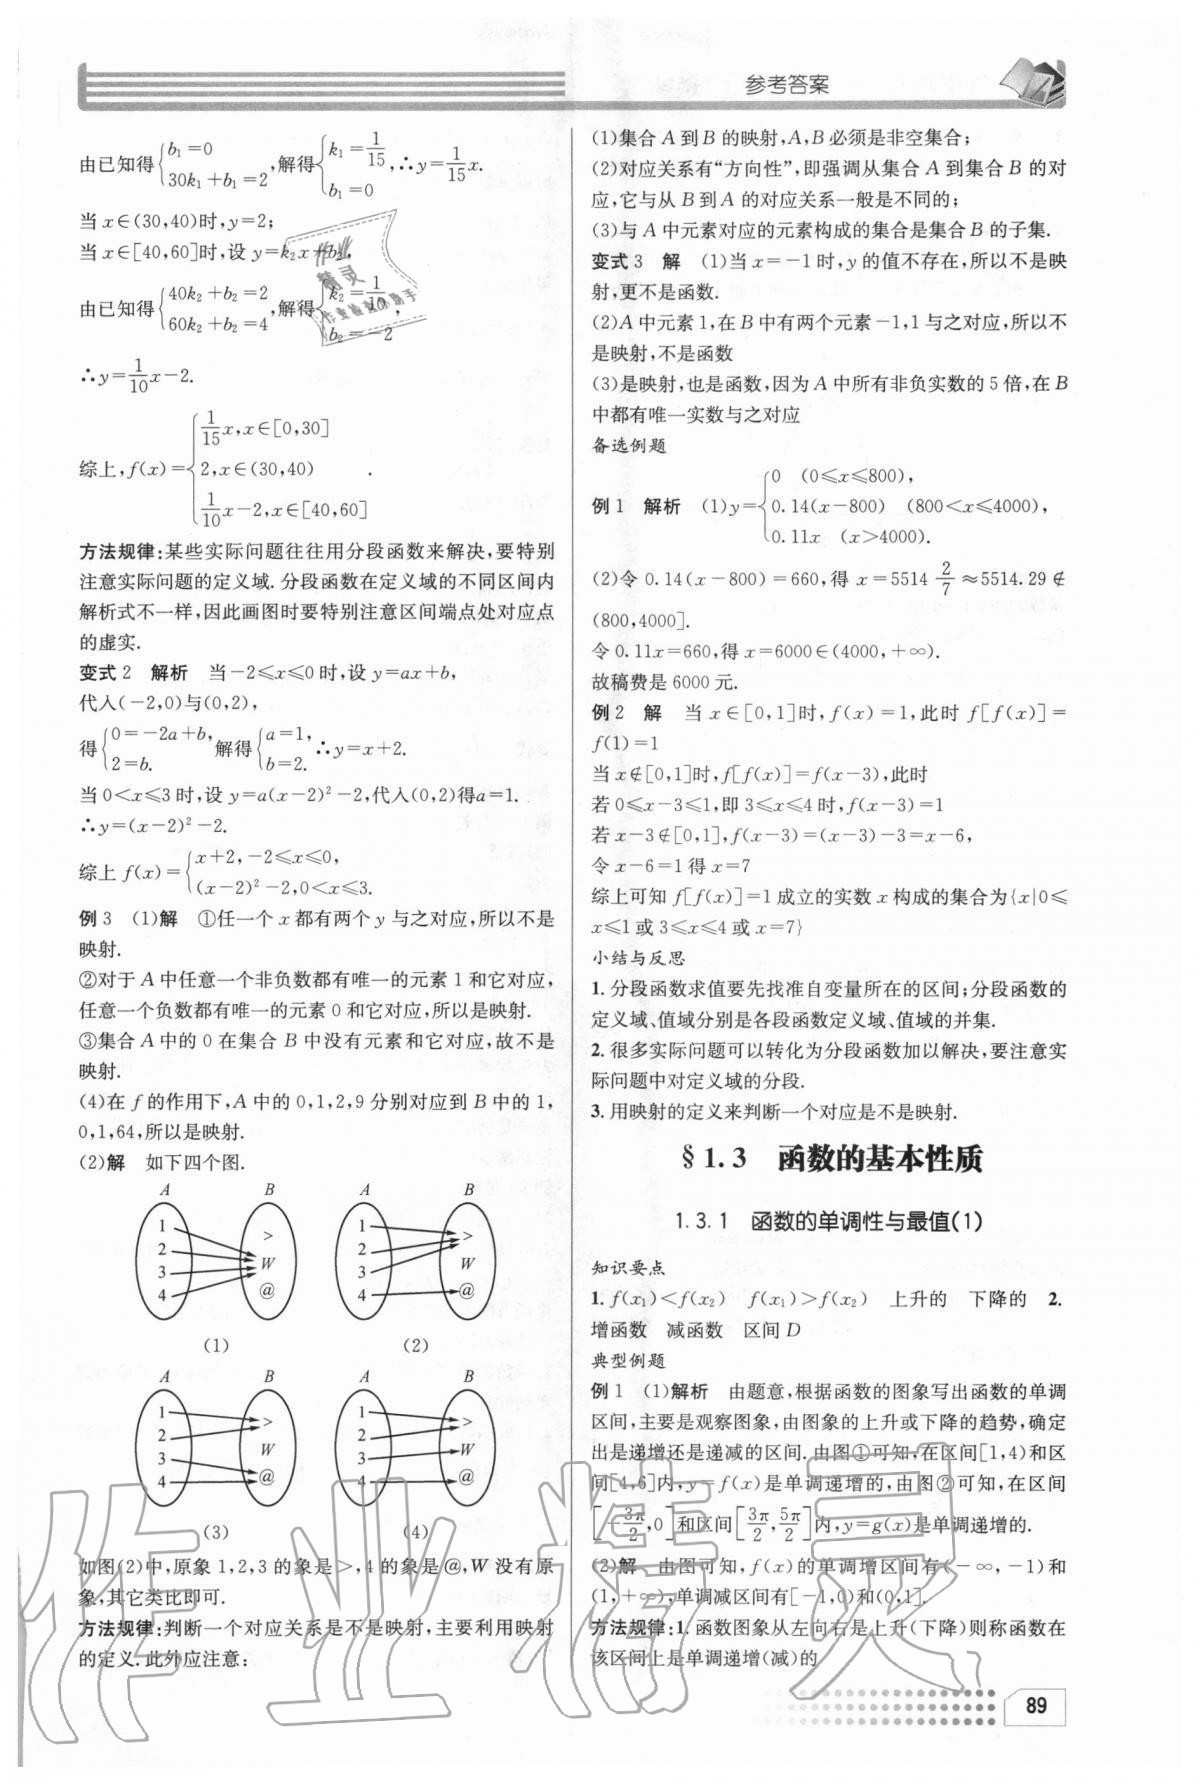 参考答案
由已知得{b₁=0
30k₁+b₁=2,解得{k₁=1/15
b₁=0,∴y=1/15x.
当x∈(30,40)时,y=2;
当x∈[40,60]时,设y=k₂x+b₂,
由已知得{40k₂+b₂=2
60k₂+b₂=4,解得{k₂=1/10
b₂=-2,
∴y=1/10x-2.
综上,f(x)={1/15x,x∈[0,30]
2,x∈(30,40)
1/10x-2,x∈[40,60].
方法规律:某些实际问题往往用分段函数来解决,要特别
注意实际问题的定义域.分段函数在定义域的不同区间内
解析式不一样,因此画图时要特别注意区间端点处对应点
的虚实.
变式2 解析 当-2≤x≤0时,设y=ax+b,
代入(-2,0)与(0,2),
得{0=-2a+b,
2=b.解得{a=1,
b=2.∴y=x+2.
当0<x≤3时,设y=a(x-2)²-2,代入(0,2)得a=1.
∴y=(x-2)²-2.
综上f(x)={x+2,-2≤x≤0,
(x-2)²-2,0<x≤3.
例3 (1)解 ①任一个x都有两个y与之对应,所以不是
映射.
②对于A中任意一个非负数都有唯一的元素1和它对应,
任意一个负数都有唯一的元素0和它对应,所以是映射.
③集合A中的0在集合B中没有元素和它对应,故不是
映射.
(4)在f的作用下,A中的0,1,2,9分别对应到B中的1,
0,1,64,所以是映射.
(2)解 如下四个图.
A B A B
1 > 1 >
2 W 2 W
3 @ 3 @
4 4
(1) (2)
A B A B
1 > 1 >
2 W 2 W
3 @ 3 @
4 4
(3) (4)
如图(2)中,原象1,2,3的象是>,4的象是@,W没有原
象,其它类比即可.
方法规律:判断一个对应关系是不是映射,主要利用映射
的定义.此外应注意:
(1)集合A到B的映射,A,B必须是非空集合;
(2)对应关系有“方向性”,即强调从集合A到集合B的对
应,它与从B到A的对应关系一般是不同的;
(3)与A中元素对应的元素构成的集合是集合B的子集.
变式3 解 (1)当x=-1时,y的值不存在,所以不是映
射,更不是函数.
(2)A中元素1,在B中有两个元素-1,1与之对应,所以不
是映射,不是函数
(3)是映射,也是函数,因为A中所有非负实数的5倍,在B
中都有唯一实数与之对应
备选例题
例1 解析 (1)y={0 (0≤x≤800),
0.14(x-800) (800<x≤4000),
0.11x (x>4000).
(2)令0.14(x-800)=660,得x=5514 2/7≈5514.29∉
(800,4000].
令0.11x=660,得x=6000∈(4000,+∞).
故稿费是6000元.
例2 解 当x∈[0,1]时,f(x)=1,此时f[f(x)]=
f(1)=1
当x∉[0,1]时,f[f(x)]=f(x-3),此时
若0≤x-3≤1,即3≤x≤4时,f(x-3)=1
若x-3∉[0,1],f(x-3)=(x-3)-3=x-6,
令x-6=1得x=7
综上可知f[f(x)]=1成立的实数x构成的集合为{x|0≤
x≤1或3≤x≤4或x=7}
小结与反思
1.分段函数求值要先找准自变量所在的区间;分段函数的
定义域、值域分别是各段函数定义域、值域的并集.
2.很多实际问题可以转化为分段函数加以解决,要注意实
际问题中对定义域的分段.
3.用映射的定义来判断一个对应是不是映射.
§1.3 函数的基本性质
1.3.1 函数的单调性与最值(1)
知识要点
1.f(x₁)<f(x₂) f(x₁)>f(x₂) 上升的 下降的 2.
增函数 减函数 区间D
典型例题
例1 (1)解析 由题意,根据函数的图象写出函数的单调
区间,主要是观察图象,由图象的上升或下降的趋势,确定
出是递增还是递减的区间.由图①可知,在区间[1,4)和区
间[4,6]内,y=f(x)是单调递增的,由图②可知,在区间
[-3π/2,0]和区间[3π/2,5π/2]内,y=g(x)是单调递增的.
(2)解 由图可知,f(x)的单调增区间有(-∞,-1)和
(1,+∞),单调减区间有[-1,0)和(0,1].
方法规律:1.函数图象从左向右是上升(下降)则称函数在
该区间上是单调递增(减)的
89
作业精灵
作业
精灵
作业检查小助手